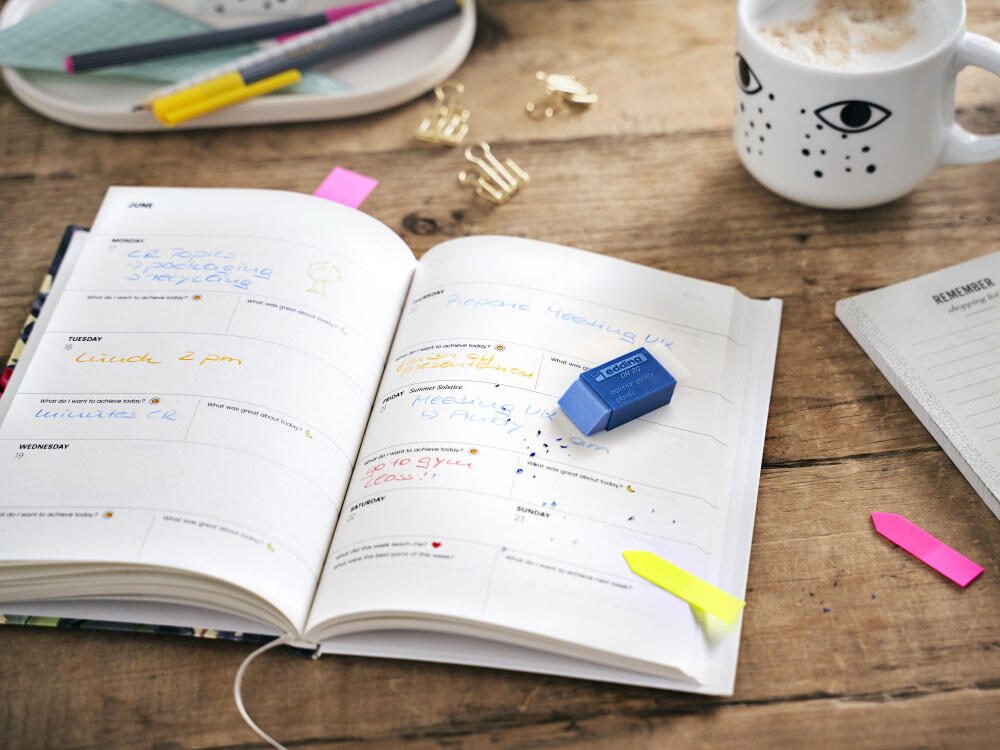 JUNE
MONDAY
17
CR Topics
→ packaging
→ recycling
What do I want to achieve today?
What was great about today?
TUESDAY
18
Lunch 2 pm
What do I want to achieve today?
minutes CR
What was great about today?
WEDNESDAY
19
do I want to achieve today?
What was great about today?
THURSDAY
20
Prepare Meeting UK
What do I want to achieve today?
finish off
presentation
What was
FRIDAY Summer Solstice
21
Meeting UK
↳ Andy
am
What do I want to achieve today?
go to gym
class!!
What was great about today?
SATURDAY
22
SUNDAY
23
What did this week teach me?
What were the best parts of this week?
What do I want to achieve next week?
edding
DR 20
superior quality
plastic
REMEMBER
shopping list